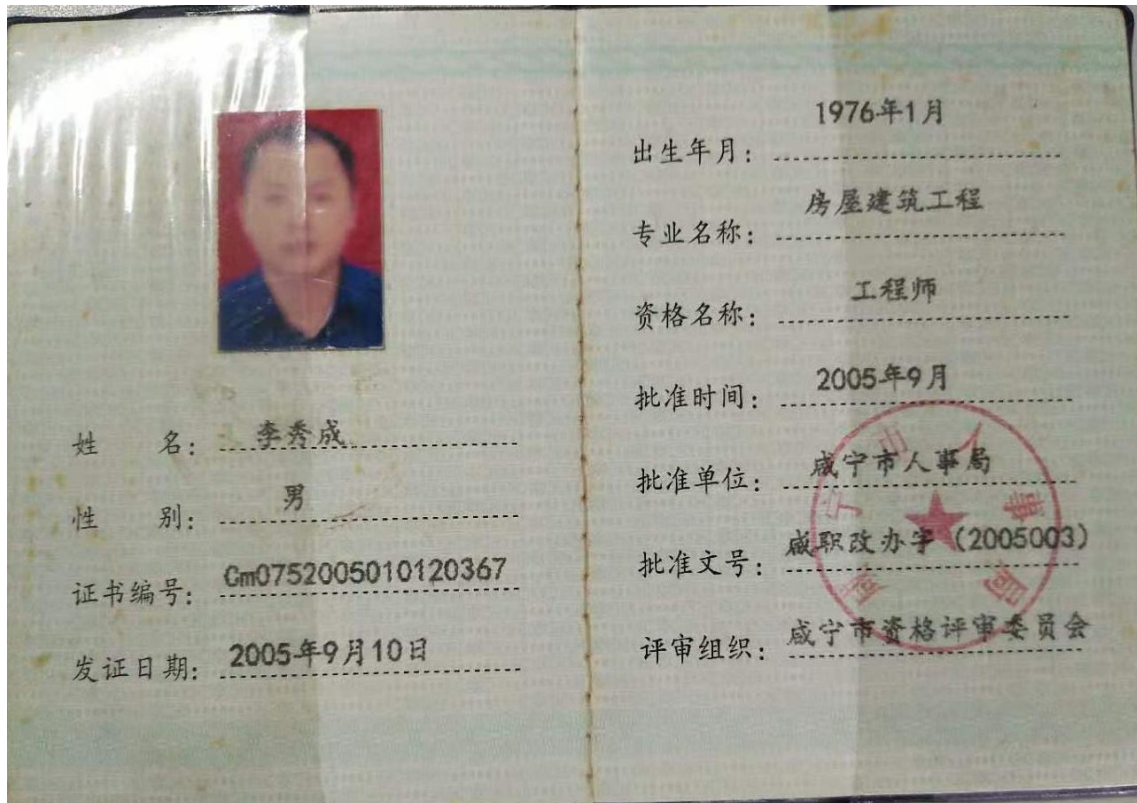 姓 名：李秀成
性 别：男
证书编号：Cm0752005010120367
发证日期：2005年9月10日
出生年月：1976年1月
专业名称：房屋建筑工程
资格名称：工程师
批准时间：2005年9月
批准单位：咸宁市人事局
批准文号：咸职改办字（2005003）
评审组织：咸宁市资格评审委员会
咸宁市人事局